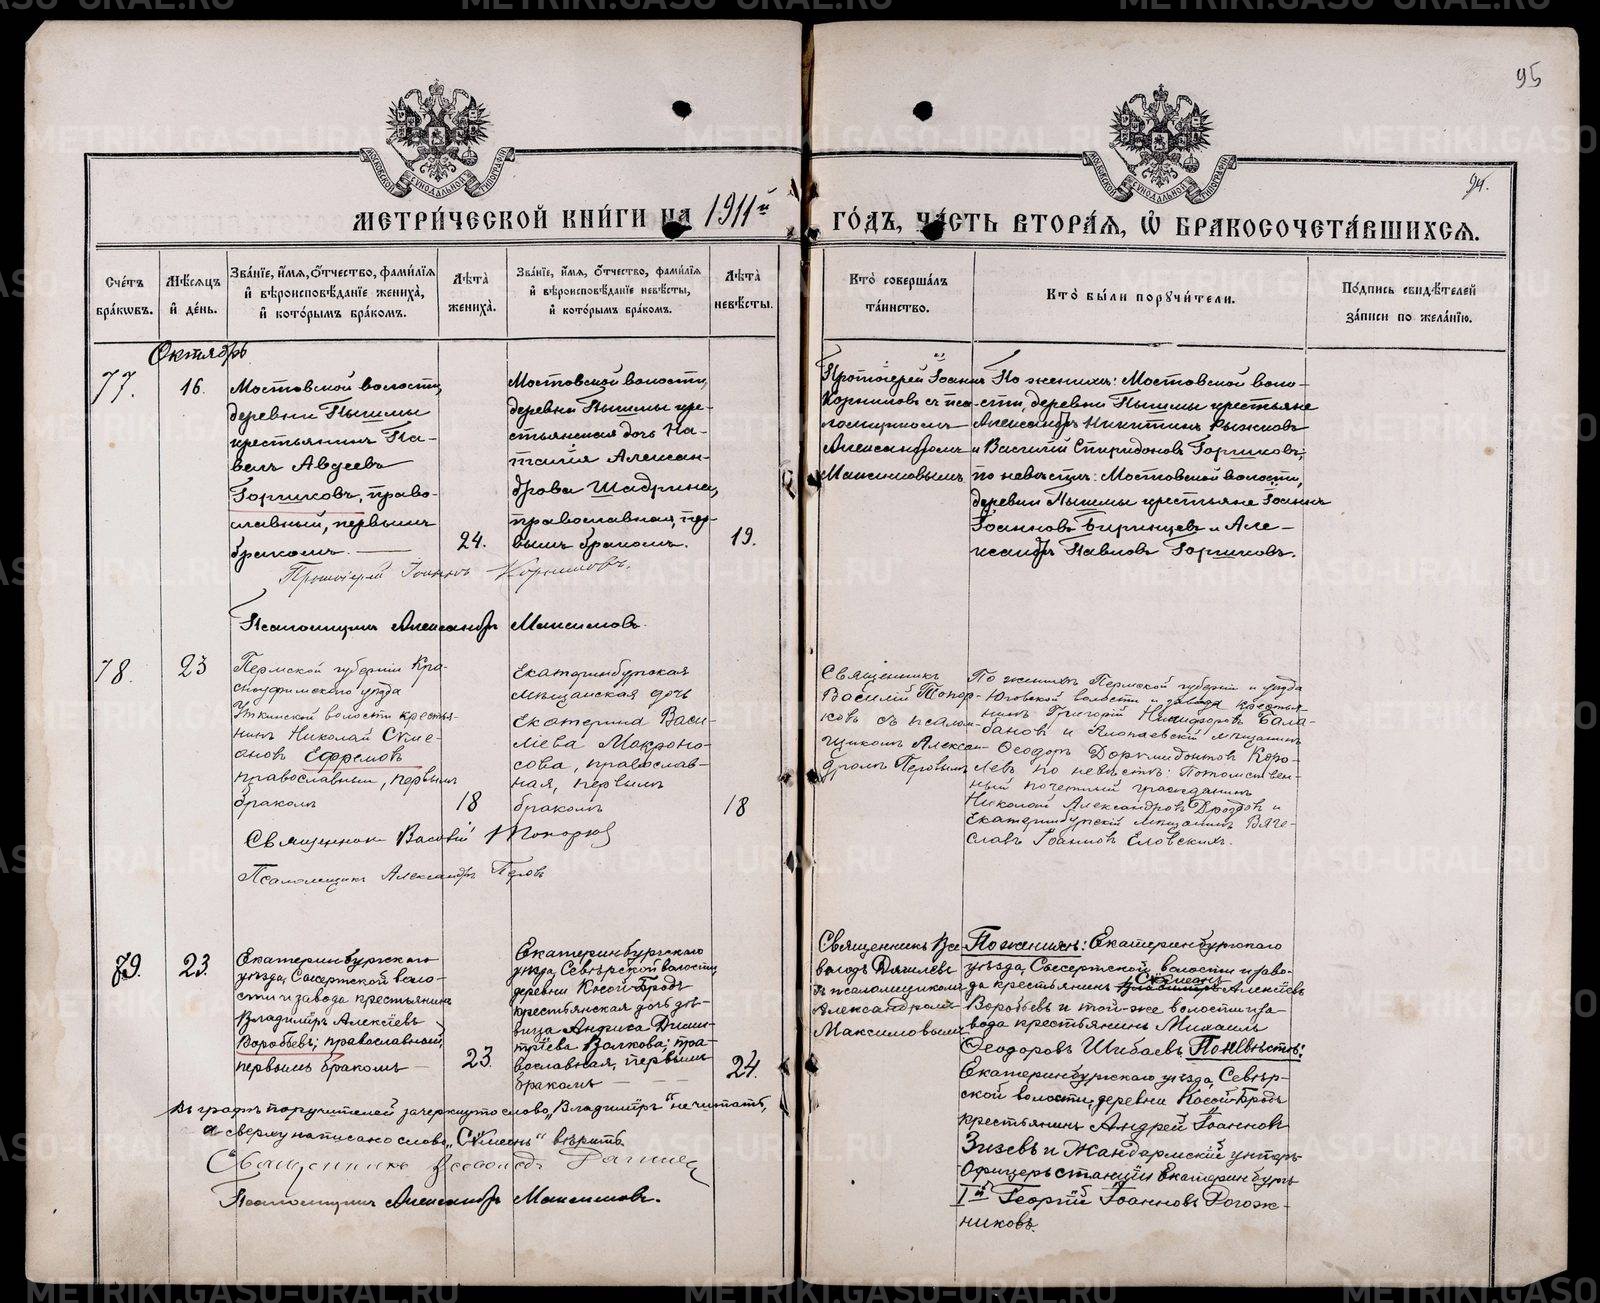 95
94.
МОСКОВСКОЙ СѴНОДАЛЬНОЙ ТИПОГРАФІИ
МОСКОВСКОЙ СѴНОДАЛЬНОЙ ТИПОГРАФІИ
МЕТРИ́ЧЕСКОЙ КНИ́ГИ НА 1911й ГО́ДЪ, ЧА́СТЬ ВТОРА́Я, Ѽ БРАКОСОЧЕТА́ВШИХСѦ.
Сче́тъ бра́кѡвъ.
Мѣ́сѧцъ и҆ де́нь.
Зва́нїе, и҆́мя, ѻ҆́тчество, фами́лїя и҆ вѣроисповѣ́данїе жениха̀, и҆ кото́рымъ бра́комъ.
Лѣ́та жениха̀.
Зва́нїе, и҆́мя, ѻ҆́тчество, фами́лїя и҆ вѣроисповѣ́данїе невѣ́сты, и҆ кото́рымъ бра́комъ.
Лѣ́та невѣ́сты.
Кто̀ соверша́лъ та́инство.
Кто̀ бы́ли порꙋчи́тели.
По́дпись свидѣ́телей за́писи по жела́нїю.
Октябрь
77.
16.
Мостовской волости,
деревни Пышмы
крестьянинъ Па-
велъ Авдеевъ
Горшковъ, право-
славный, первымъ
бракомъ.
24.
Мостовской волости,
деревни Пышмы кре-
стьянская дочь На-
талія Алексан-
дрова Шадрина,
православная, пер-
вымъ бракомъ.
19.
Протоіерей Іоаннъ
Корниловъ съ пса-
ломщикомъ
Александромъ
Максимовымъ
По женихѣ: Мостовской воло-
сти, деревни Пышмы крестьяне
Александръ Никитинъ Рыжковъ
и Василій Спиридоновъ Горшковъ;
по невѣстѣ: Мостовской волости,
деревни Пышмы крестьяне Іоаннъ
Іоанновъ Биринцевъ и Але-
ксандръ Павловъ Горшковъ.
Протоіерей Іоаннъ Корниловъ.
Псаломщикъ Александръ Максимовъ.
78.
23
Пермской губерніи Кра-
сноуфимскаго уѣзда
Уткинской волости кресть-
нинъ Николай Симе-
оновъ Ефремовъ
православный, первымъ
бракомъ
18
Екатеринбургская
мѣщанская дочь
Екатерина Васи-
ліева Макроно-
сова, православ-
ная, первымъ
бракомъ
18
Священникъ
Василій Топор-
ковъ съ псалом-
щикомъ Алексан-
дромъ Перовымъ
По женихѣ Пермской губерніи и уѣзда
Юговской волости и завода крестья-
нинъ Григорій Никифоровъ Бала-
бановъ и мѣщанинъ
Ѳеодоръ Дормидонтовъ Коро-
левъ, по невѣстѣ: Потомствен-
ный почетный гражданинъ
Николай Александровъ Дроздовъ и
Екатеринбургскій мѣщанинъ Вяче-
славъ Іоанновъ Еловскихъ.
Священникъ Василій Топорковъ
Псаломщикъ Александръ Перовъ
79.
23.
Екатеринбургскаго
уѣзда, Сысертской воло-
сти и завода крестьянинъ
Владимиръ Алексіевъ
Воробьевъ; православный,
первымъ бракомъ
23.
Екатеринбургскаго
уѣзда, Сѣверской волости
деревни Косой-Бродъ
крестьянская дочь дѣ-
вица Анфиса Дими-
тріева Волкова; пра-
вославная, первымъ
бракомъ
24.
Священникъ Все-
володъ Дягилевъ
съ псаломщикомъ
Александромъ
Максимовымъ
По женихѣ: Екатеринбургскаго
уѣзда, Сысертской волости и заво-
да крестьянинъ Владимиръ Сѵмеонъ Алексіевъ
Воробьевъ и той-же волости и за-
вода крестьянинъ Михаилъ
Ѳеодоровъ Шибаевъ. По невѣстѣ:
Екатеринбургскаго уѣзда, Сѣвер-
ской волости, деревни Косой-Бродъ
крестьянинъ Андрей Іоанновъ
Зизевъ и Жандармскій унтеръ-
офицеръ станціи Екатеринбургъ
Iй Георгій Іоанновъ Рогож-
никовъ.
Въ графѣ поручителей зачеркнуто слово „Владиміръ“ не читать,
а сверху написано слово „Сѵмеонъ“ вѣрить.
Священникъ Всеволодъ Дягилевъ
Псаломщикъ Александръ Максимовъ.
METRIKI.GASO-URAL.RU